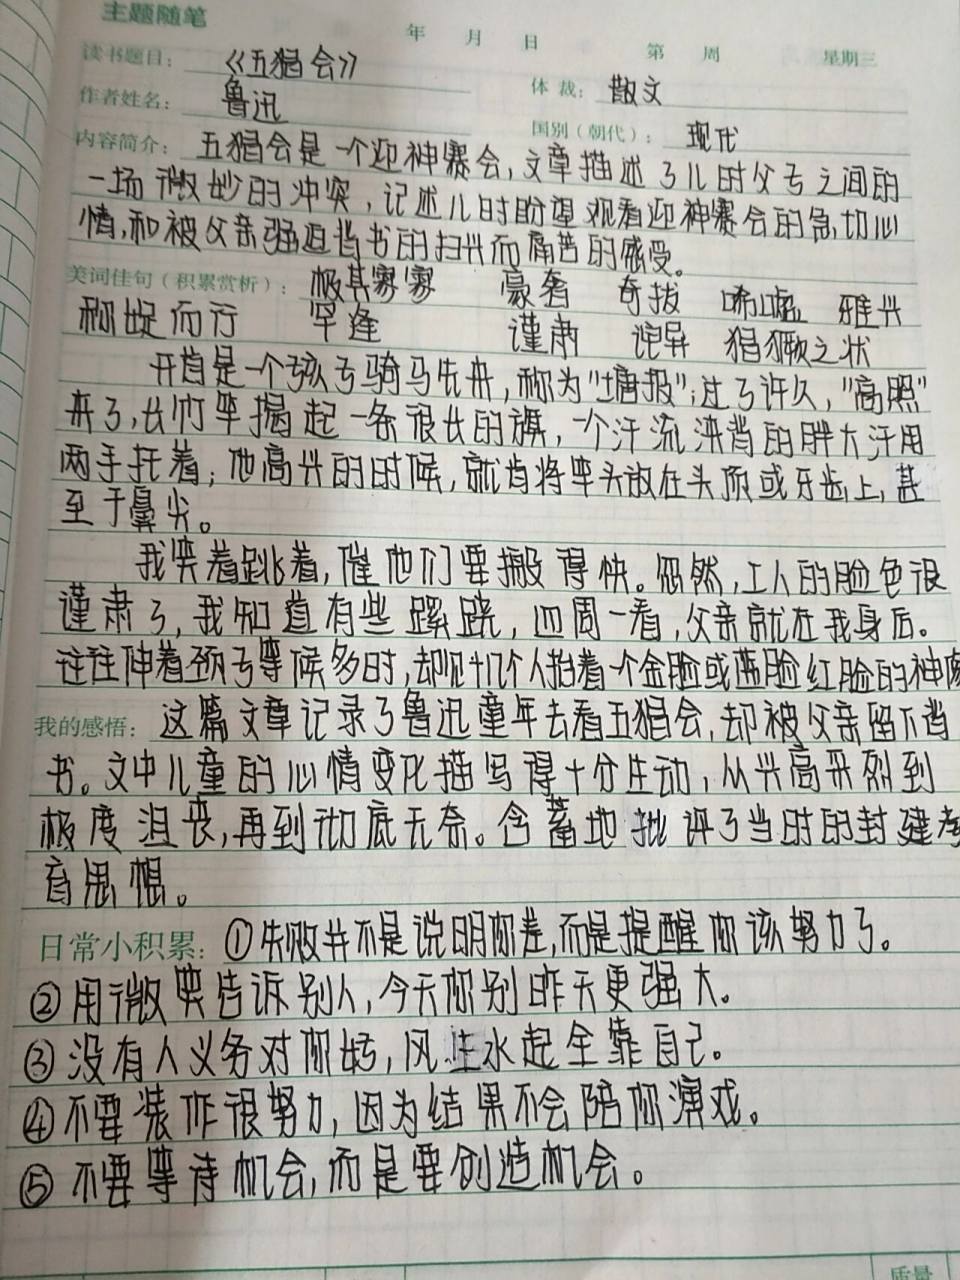 主题随笔
年 月 日 第 周 星期三
读书题目：《五猖会》 体裁：散文
作者姓名：鲁迅 国别（朝代）：现代
内容简介：五猖会是一个迎神赛会，文章描述了儿时父子之间的
一场微妙的冲突，记述儿时盼望观看迎神赛会的急切心
情，和被父亲强迫背书的扫兴而痛苦的感受。
美词佳句（积累赏析）：极其寥寥 豪奢 奇拔 唏嘘 雅兴
称娖而行 罕逢 谨肃 诧异 猖獗之状
开首是一个孩子骑马先来，称为"塘报"；过了许久，"高照"
来了，长竹竿揭起一条很长的旗，一个汗流浃背的胖大汗用
两手托着；他高兴的时候，就肯将竿头放在头顶或牙齿上，甚
至于鼻尖。
我笑着跳着，催他们要搬得快。忽然，工人的脸色很
谨肃了，我知道有些蹊跷，四周一看，父亲就在我身后。
往往伸着颈子等候多时，却见十几个人抬着一个金脸或蓝脸红脸的神像
我的感悟：这篇文章记录了鲁迅童年去看五猖会，却被父亲留下背
书。文中儿童的心情变化描写得十分生动，从兴高采烈到
极度沮丧，再到彻底无奈。含蓄地批评了当时的封建教
育思想。
日常小积累：①失败并不是说明你差，而是提醒你该努力了。
②用微笑告诉别人，今天你别昨天更强大。
③没有人义务对你好，风生水起全靠自己。
④不要装作很努力，因为结果不会陪你演戏。
⑤不要等待机会，而是要创造机会。
质量